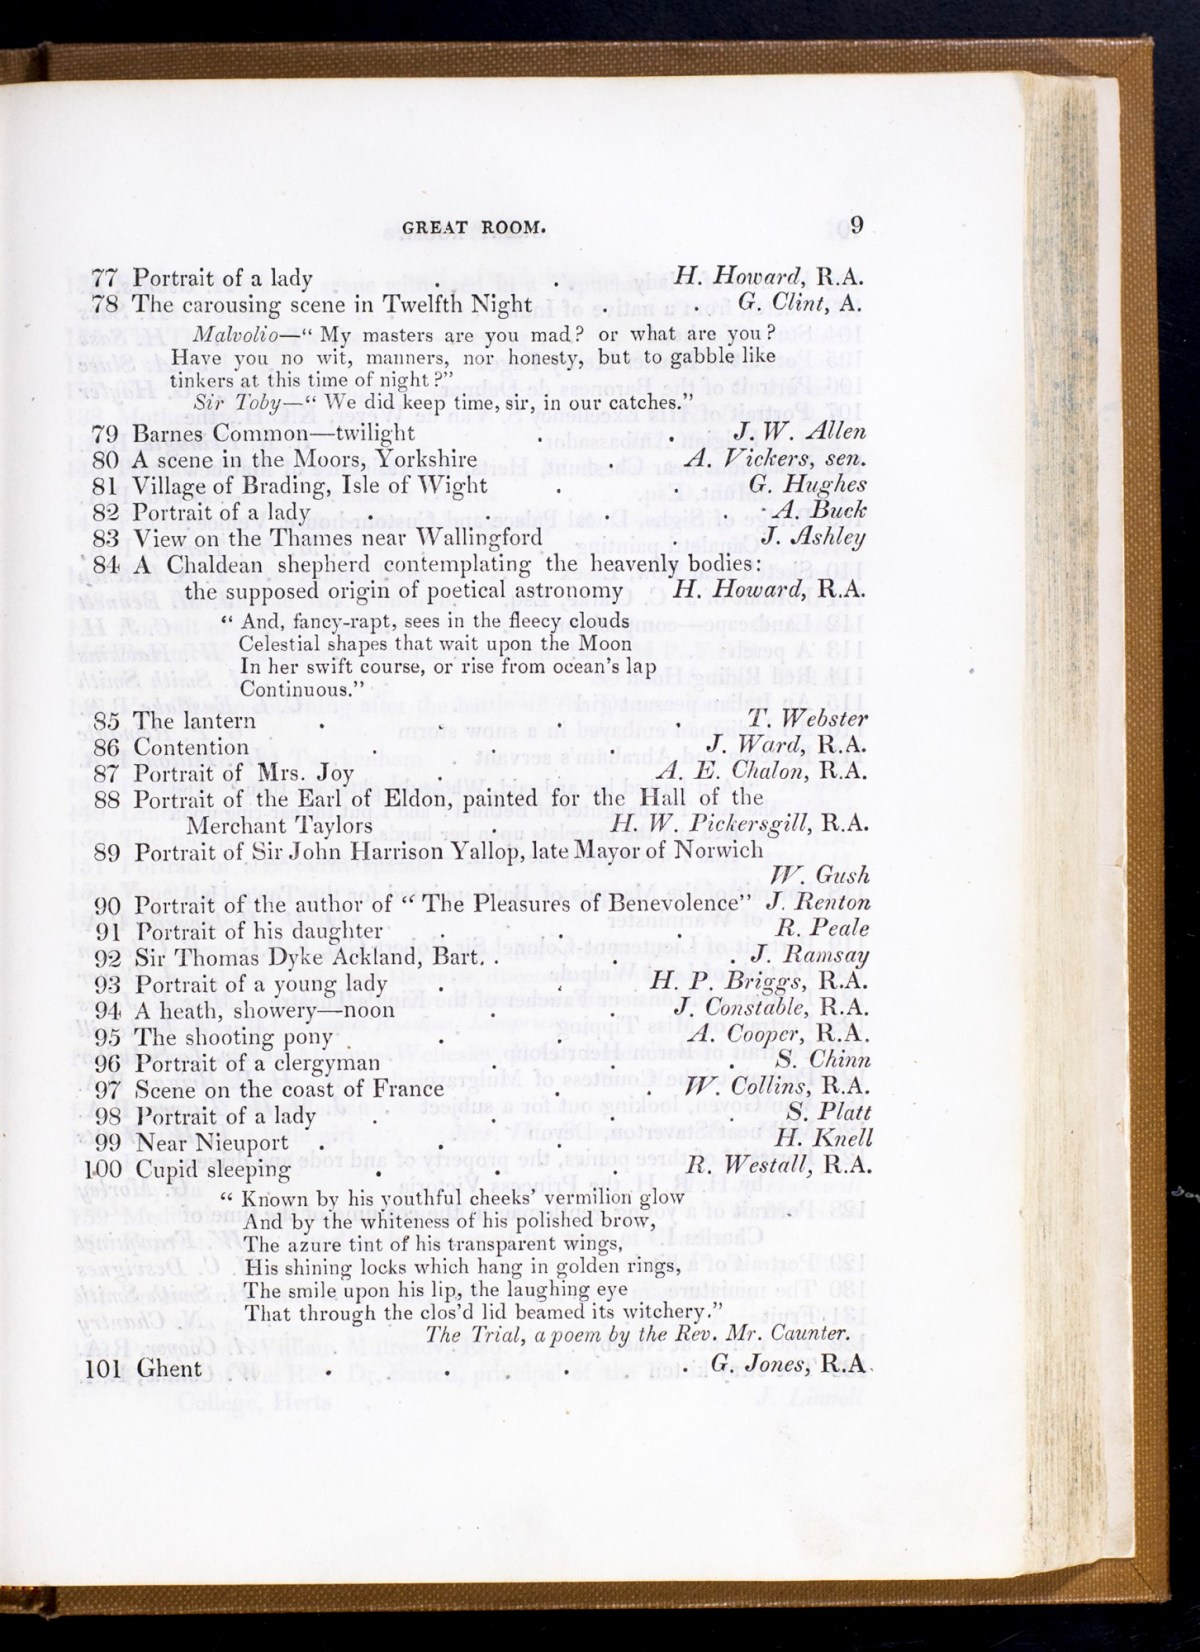 GREAT ROOM. 9
77 Portrait of a lady . . . H. Howard, R.A.
78 The carousing scene in Twelfth Night . . G. Clint, A.
Malvolio—“ My masters are you mad? or what are you?
Have you no wit, manners, nor honesty, but to gabble like
tinkers at this time of night?”
Sir Toby—“ We did keep time, sir, in our catches.”
79 Barnes Common—twilight . . J. W. Allen
80 A scene in the Moors, Yorkshire . A. Vickers, sen.
81 Village of Brading, Isle of Wight . . G. Hughes
82 Portrait of a lady . . . . A. Buck
83 View on the Thames near Wallingford . J. Ashley
84 A Chaldean shepherd contemplating the heavenly bodies:
the supposed origin of poetical astronomy H. Howard, R.A.
“ And, fancy-rapt, sees in the fleecy clouds
Celestial shapes that wait upon the Moon
In her swift course, or rise from ocean's lap
Continuous.”
85 The lantern . . . . T. Webster
86 Contention . . . J. Ward, R.A.
87 Portrait of Mrs. Joy . . A. E. Chalon, R.A.
88 Portrait of the Earl of Eldon, painted for the Hall of the
Merchant Taylors . H. W. Pickersgill, R.A.
89 Portrait of Sir John Harrison Yallop, late Mayor of Norwich
W. Gush
90 Portrait of the author of “ The Pleasures of Benevolence” J. Renton
91 Portrait of his daughter . . . R. Peale
92 Sir Thomas Dyke Ackland, Bart. . . . J. Ramsay
93 Portrait of a young lady . . H. P. Briggs, R.A.
94 A heath, showery—noon . . J. Constable, R.A.
95 The shooting pony . . . A. Cooper, R.A.
96 Portrait of a clergyman . . . S. Chinn
97 Scene on the coast of France . . W. Collins, R.A.
98 Portrait of a lady . . . . S. Platt
99 Near Nieuport . . . . H. Knell
100 Cupid sleeping . . . R. Westall, R.A.
“ Known by his youthful cheeks' vermilion glow
And by the whiteness of his polished brow,
The azure tint of his transparent wings,
His shining locks which hang in golden rings,
The smile upon his lip, the laughing eye
That through the clos'd lid beamed its witchery.”
The Trial, a poem by the Rev. Mr. Caunter.
101 Ghent . . . . . . . G. Jones, R.A.